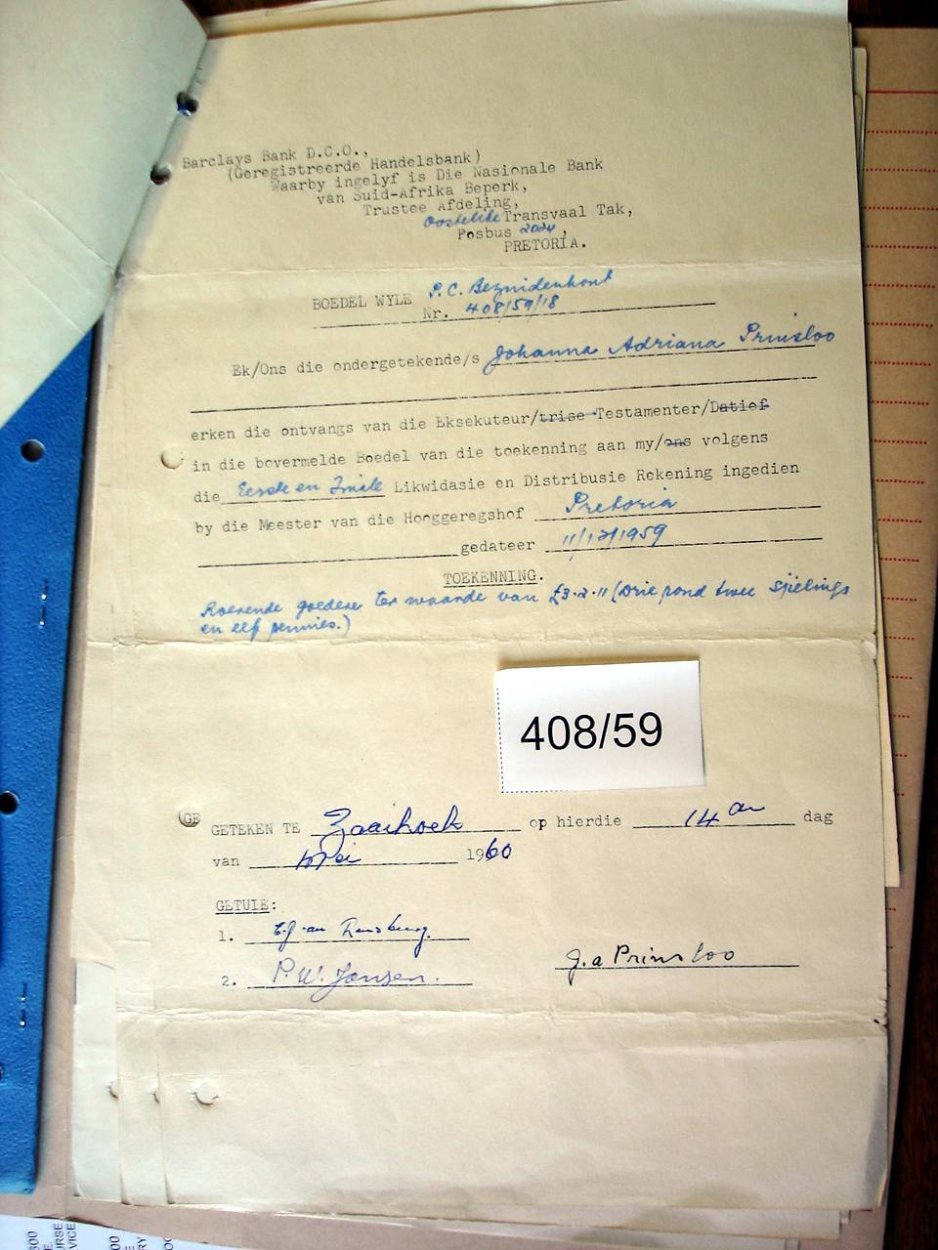 Barclays Bank D.C.O.,
(Geregistreerde Handelsbank)
Waarby ingelyf is Die Nasionale Bank
van Suid-Afrika Beperk,
Trustee Afdeling,
Oostelike Transvaal Tak,
Posbus 2024,
PRETORIA.
BOEDEL WYLE P.C. Bezuidenhout
Nr. 408/59/18
Ek/Ons die ondergetekende/s Johanna Adriana Prinsloo
erken die ontvangs van die Eksekuteur/trise Testamenter/Datief
in die bovermelde Boedel van die toekenning aan my/ons volgens
die Eerste en Finale Likwidasie en Distribusie Rekening ingedien
by die Meester van die Hooggeregshof Pretoria
gedateer 11/12/1959
TOEKENNING.
Roerende goedere ter waarde van £3-2-11 (Drie pond twee sjielings
en elf pennies.)
408/59
GE GETEKEN TE Zaaihoek op hierdie 14 de dag
van Mei 1960
GETUIE:
1. van Rensburg.
2. P.W. Jansen.
J.a Prinsloo